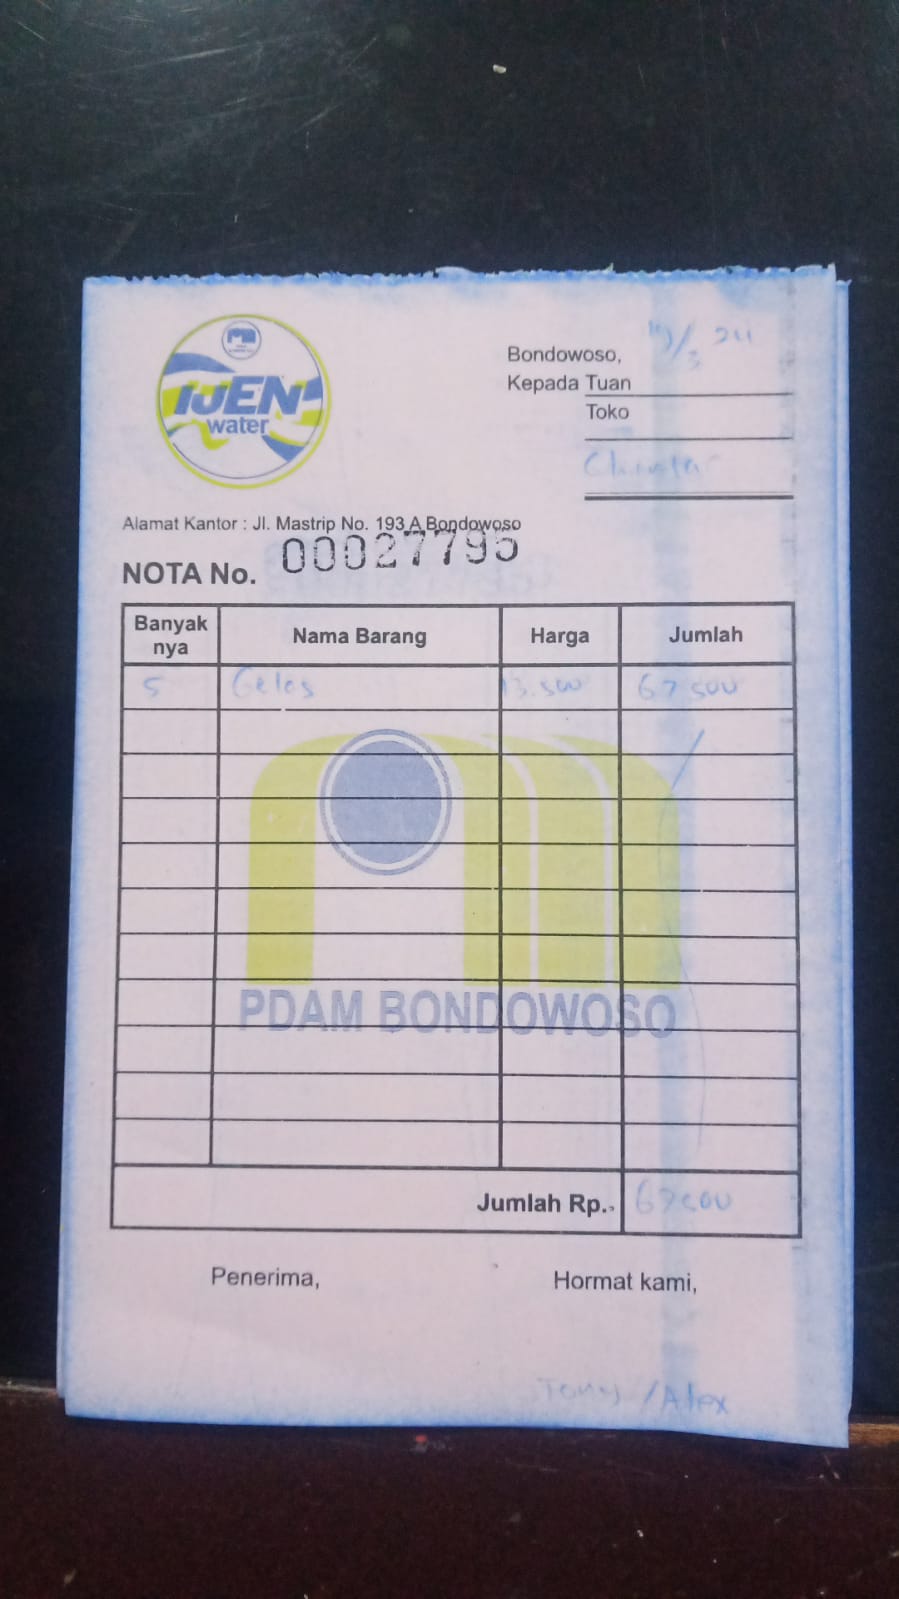 IJEN
water
Bondowoso,
Kepada Tuan
Toko
Alamat Kantor : Jl. Mastrip No. 193 A Bondowoso
NOTA No. 00027795
Banyak nya Nama Barang Harga Jumlah
5 Gelas 13.500 67500
PDAM BONDOWOSO
Jumlah Rp. 67500
Penerima, Hormat kami,
Tony / Alex